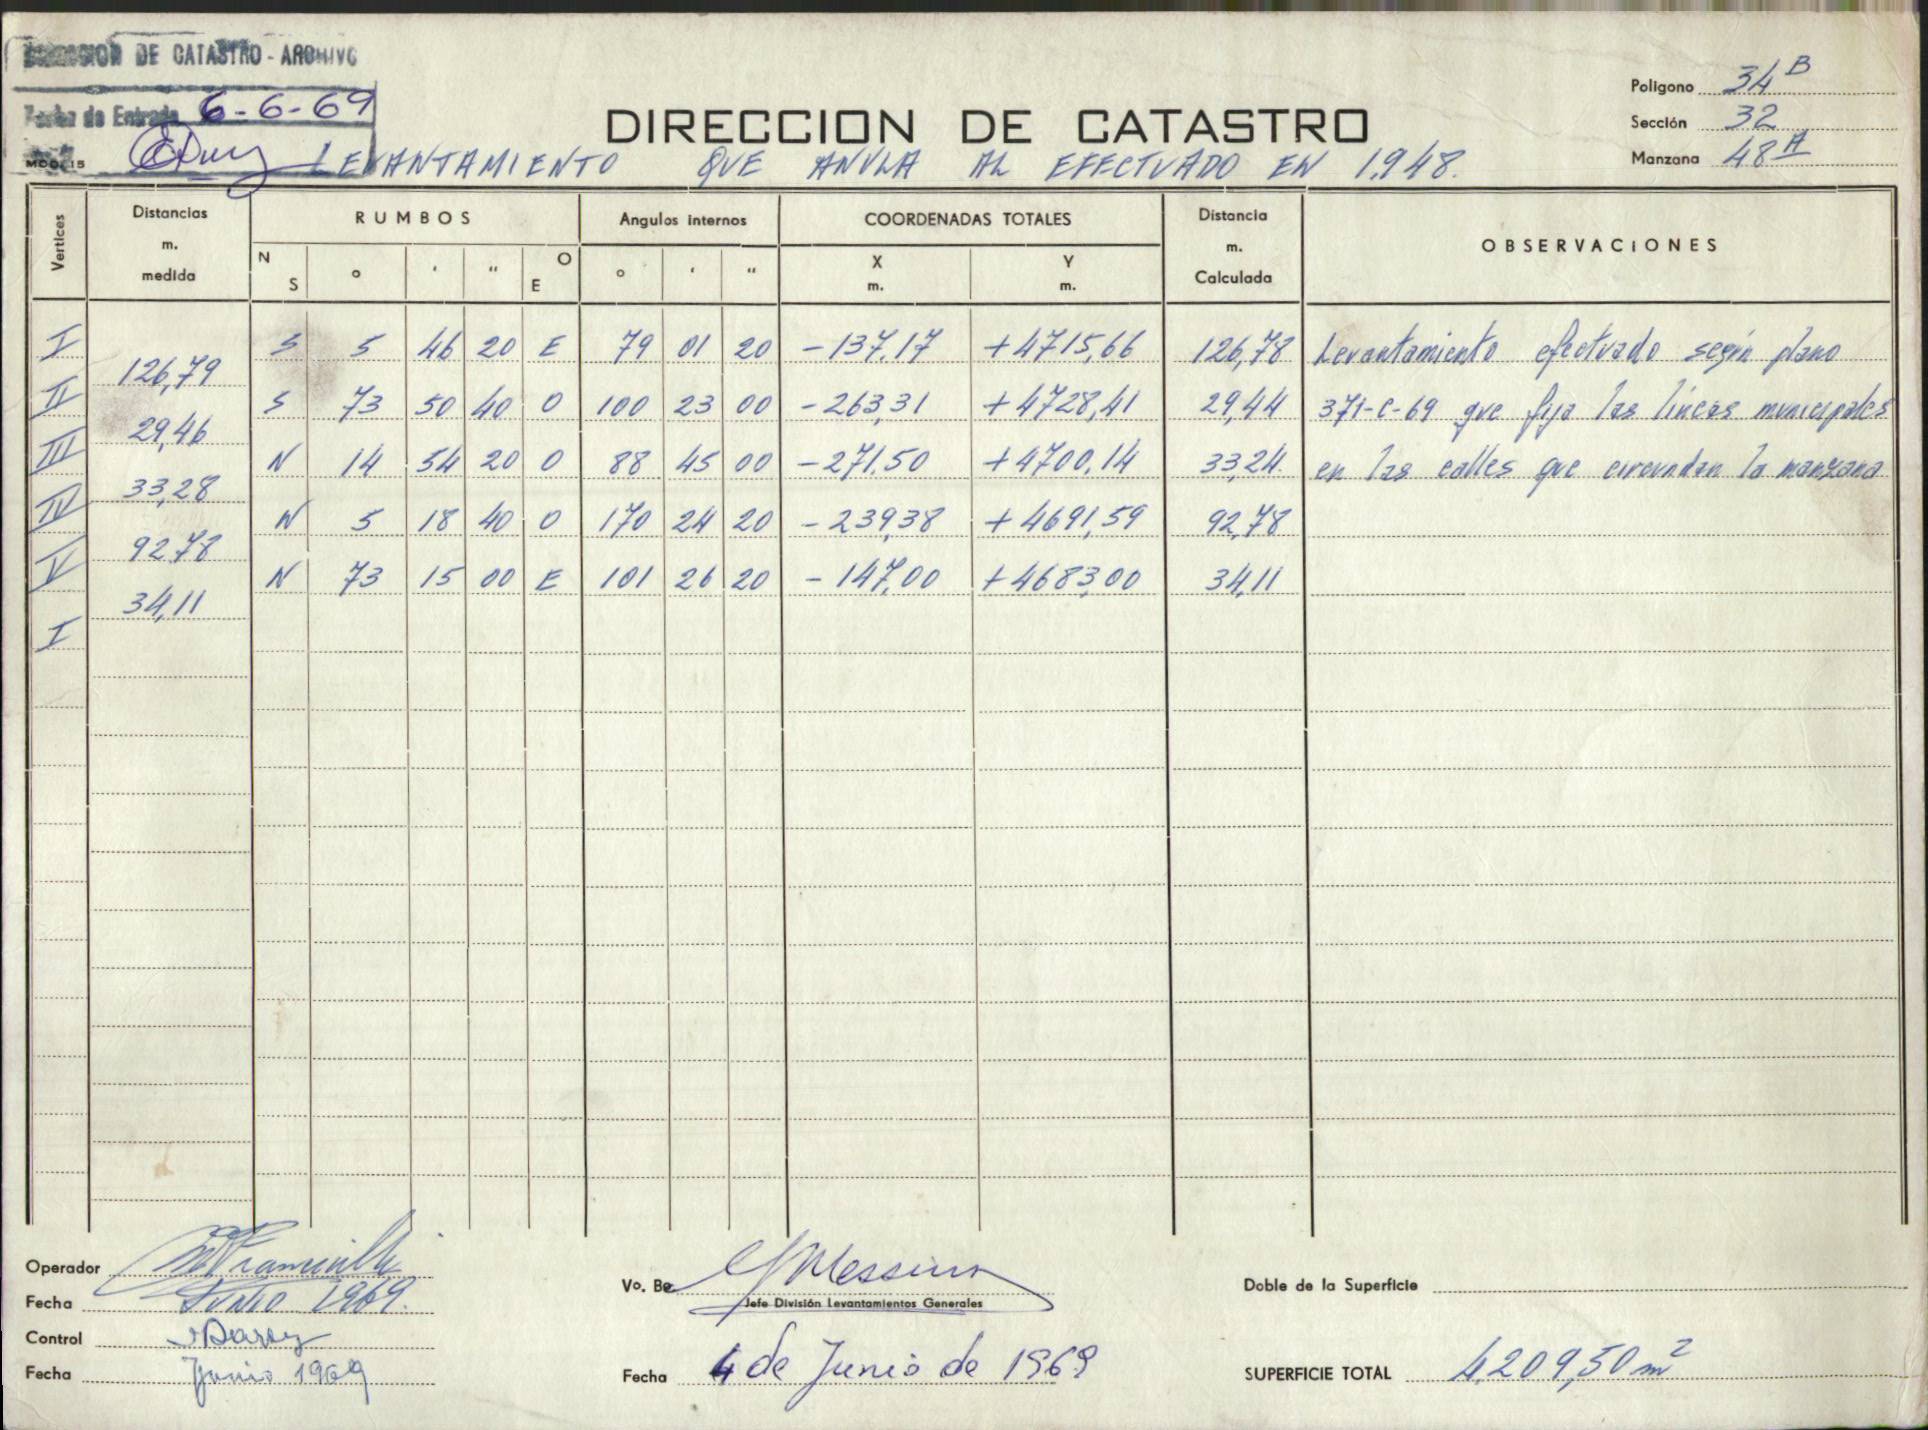 DIRECCION DE CATASTRO - ARCHIVO
Fecha de Entrada 6-6-69
MOD. 15
DIRECCION DE CATASTRO
LEVANTAMIENTO QUE ANULA AL EFECTUADO EN 1.948.
Poligono 34 B
Sección 32
Manzana 48 A
Vertices Distancias m. medida RUMBOS N S ° ' " O E Angulos internos ° ' " COORDENADAS TOTALES X m. Y m. Distancia m. Calculada OBSERVACIONES
I S 5 46 20 E 79 01 20 -137,17 +4715,66 126,78 Levantamiento efectuado según plano
126,79
II S 73 50 40 O 100 23 00 -263,31 +4728,41 29,44 371-C-69 que fija las líneas municipales
29,46
III N 14 54 20 O 88 45 00 -271,50 +4700,14 33,24 en las calles que circundan la manzana
33,28
IV N 5 18 40 O 170 24 20 -239,38 +4691,59 92,78
92,78
V N 73 15 00 E 101 26 20 -147,00 +4683,00 34,11
34,11
I
Operador
Fecha JUNIO 1969.
Control
Fecha Junio 1969
Vo. Bo. Messina
Jefe División Levantamientos Generales
Fecha 4 de Junio de 1969
Doble de la Superficie
SUPERFICIE TOTAL 4.209,50 m²